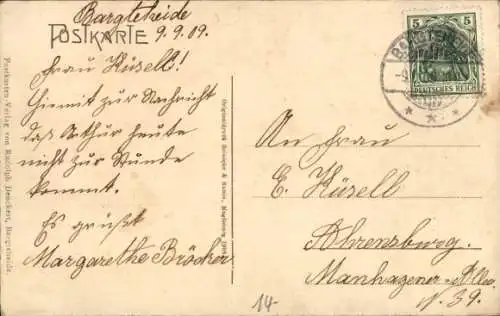 Bargteheide
POSTKARTE 9.9.09.
Frau Küsell!
Hiermit zur Nachricht
daß Arthur heute
nicht zur Stunde
kommt.
Es grüßt
Margarethe Bröcker
Postkarten-Verlag von Rudolph Denckert, Bargteheide.
5 5
DEUTSCHES REICH
BARGTEHEIDE
An Frau
E. Küsell
Ahrensburg.
Manhagener-Allee
N. 39.
14-